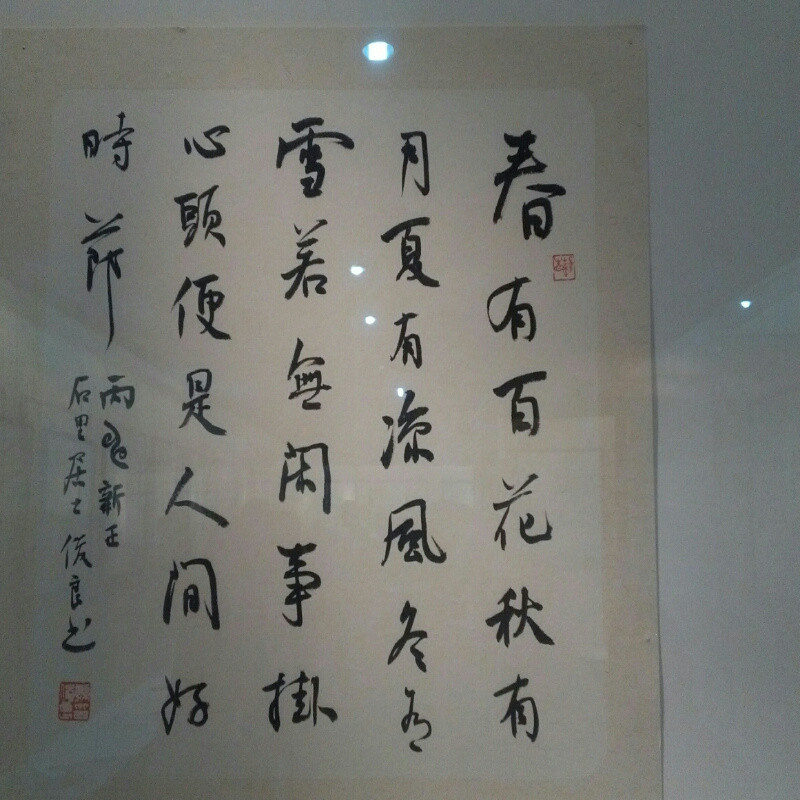 春有百花秋有
月夏有凉風冬有
雪若無閑事掛
心頭便是人間好
時節
丙申新正
石里居士俊良书